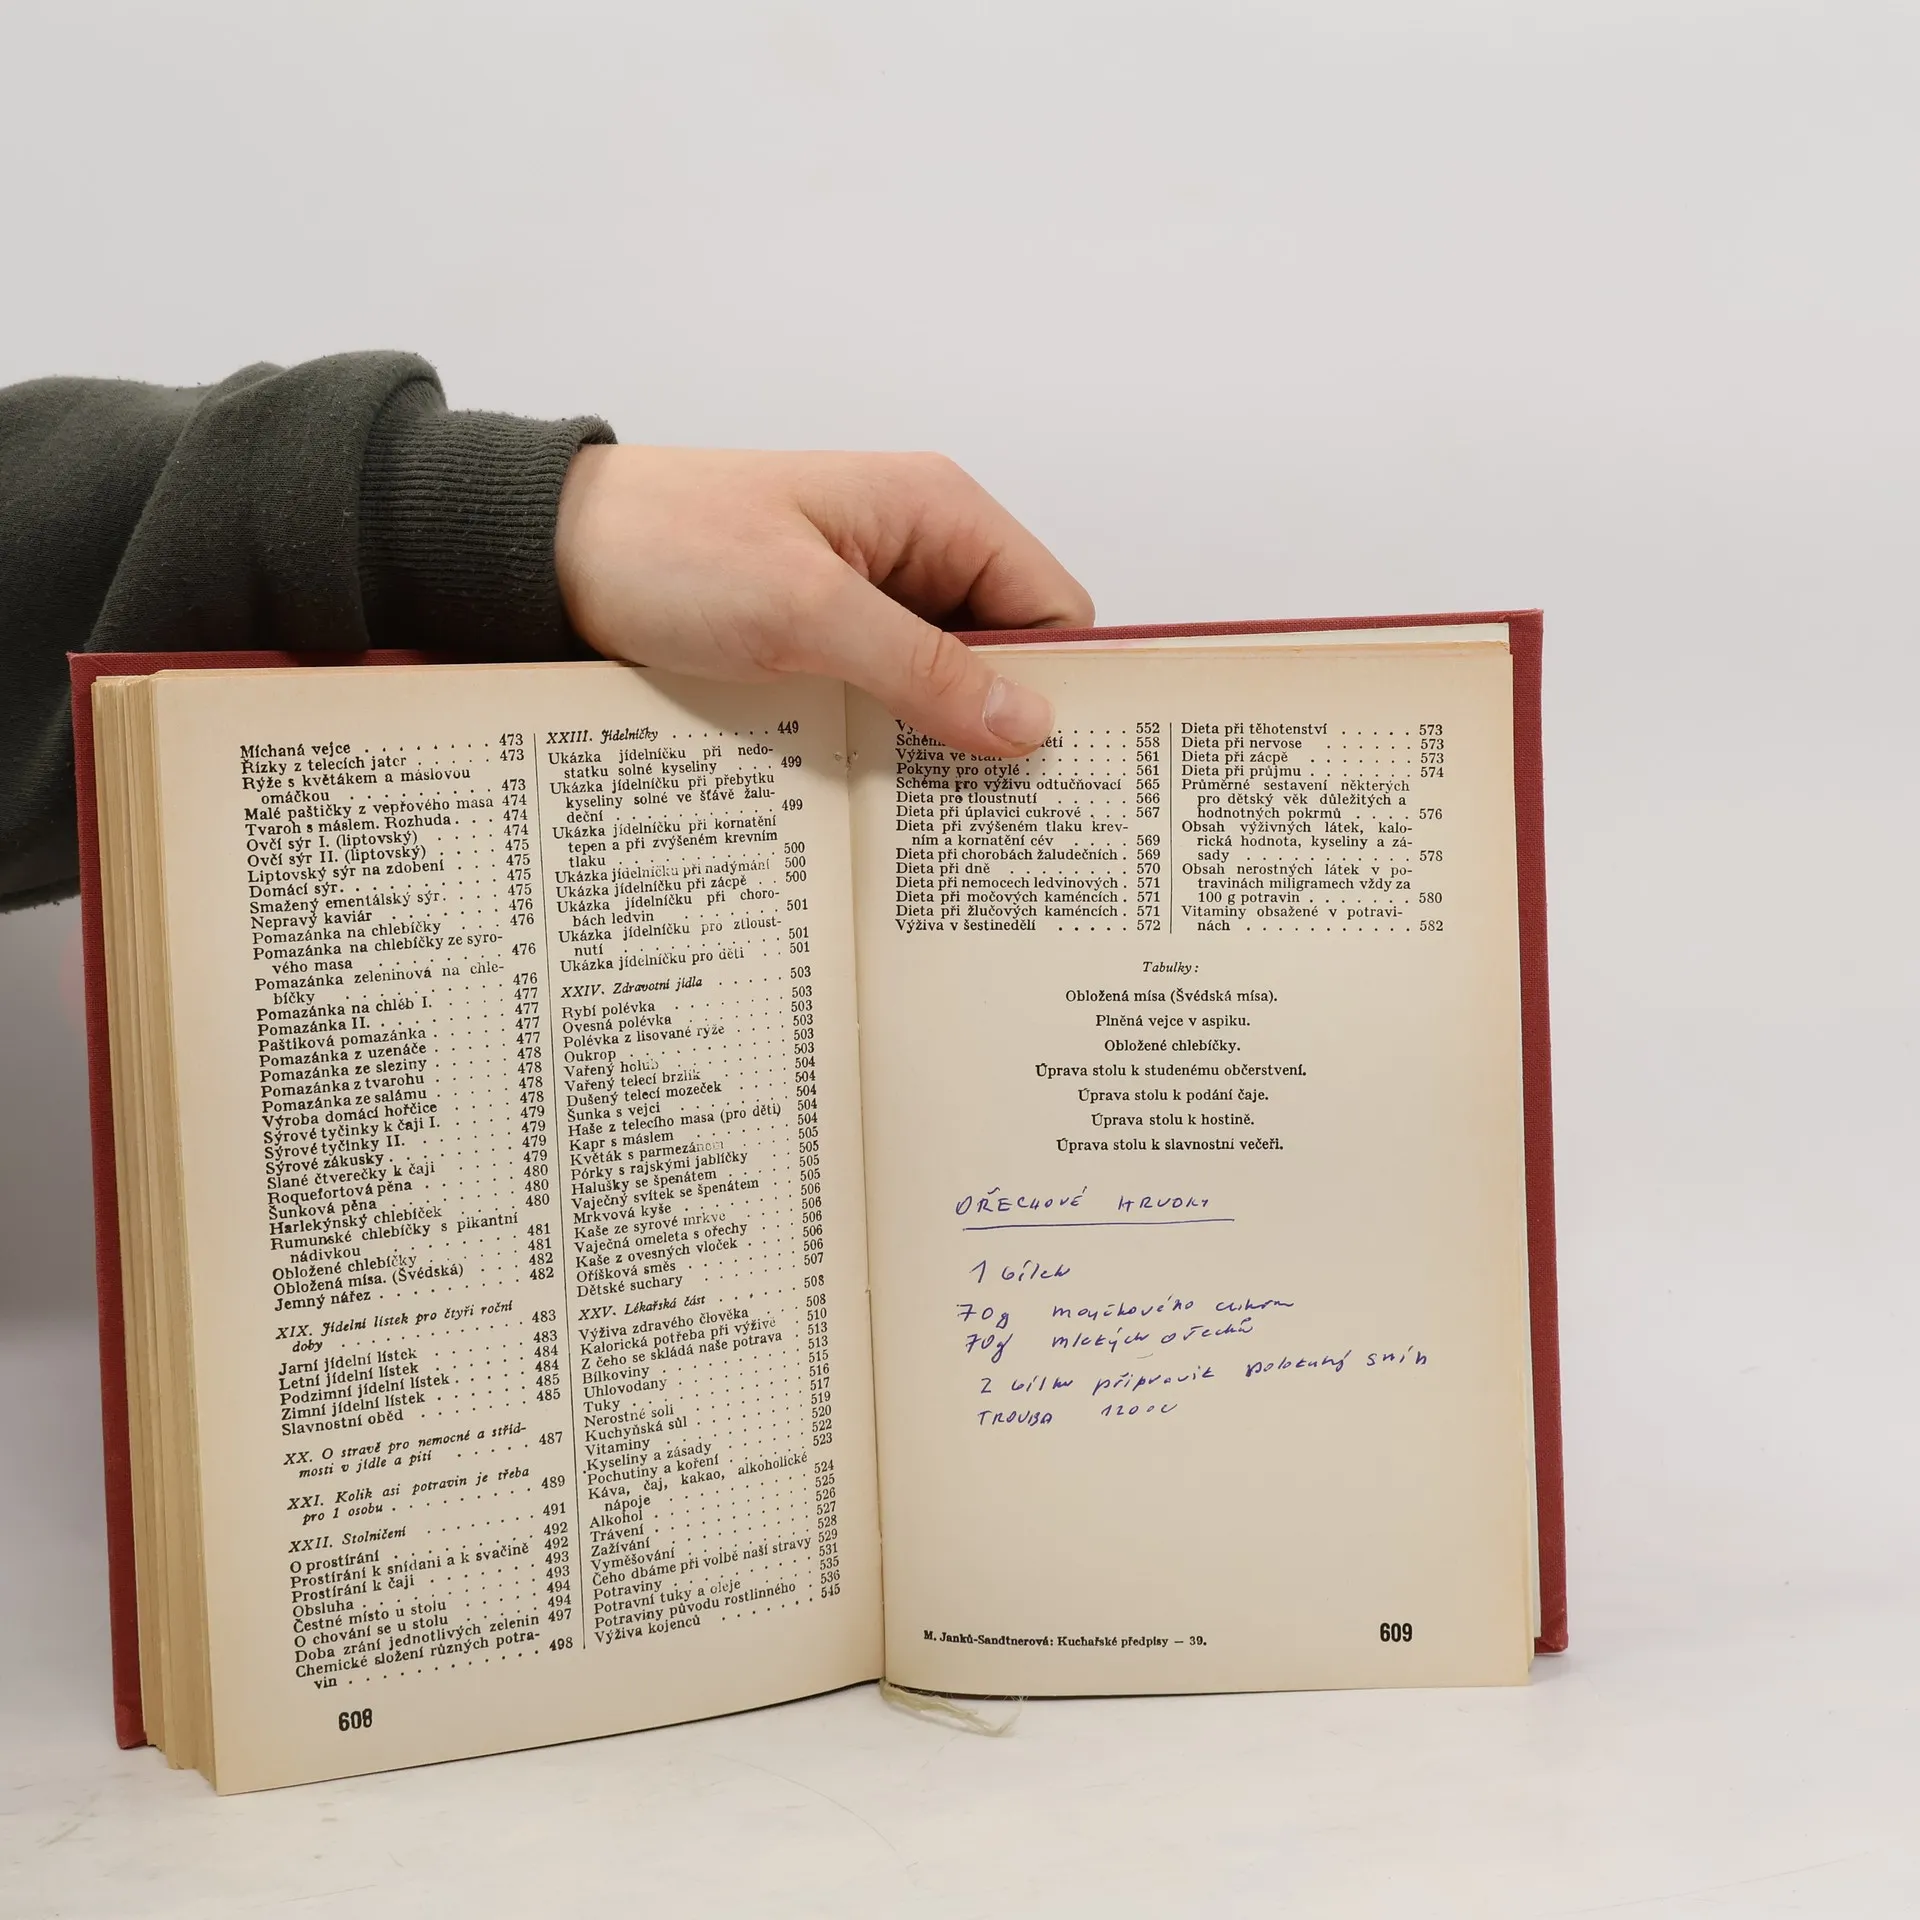 Míchaná vejce . . . . . . . . 473
Řízky z telecích jater . . . . . 473
Rýže s květákem a máslovou
omáčkou . . . . . . . . . 473
Malé paštičky z vepřového masa 474
Tvaroh s máslem. Rozhuda . . . 474
Ovčí sýr I. (liptovský) . . . . 474
Ovčí sýr II. (liptovský) . . . . 475
Liptovský sýr na zdobení . . . 475
Domácí sýr. . . . . . . . . . 475
Smažený ementálský sýr. . . . . 475
Nepravý kaviár . . . . . . . 476
Pomazánka na chlebíčky . . . 476
Pomazánka na chlebíčky ze syro-
vého masa . . . . . . . . 476
Pomazánka zeleninová na chle-
bíčky . . . . . . . . . . 476
Pomazánka na chléb I. . . . . 477
Pomazánka II. . . . . . . . . 477
Paštiková pomazánka . . . . . 477
Pomazánka z uzenáče . . . . . 477
Pomazánka ze sleziny . . . . . 478
Pomazánka z tvarohu . . . . . 478
Pomazánka ze salámu . . . . . 478
Výroba domácí hořčice . . . . 478
Sýrové tyčinky k čaji I. . . . . 479
Sýrové tyčinky II. . . . . . . 479
Sýrové zákusky . . . . . . . . 479
Slané čtverečky k čaji . . . . 479
Roquefortová pěna . . . . . . 480
Šunková pěna . . . . . . . . 480
Harlekýnský chlebíček . . . . . 480
Rumunské chlebíčky s pikantní
nádivkou . . . . . . . . . 481
Obložené chlebíčky . . . . . . 481
Obložená mísa. (Švédská) . . . 482
Jemný nářez . . . . . . . . . 482
XIX. Jídelní lístek pro čtyři roční
doby . . . . . . . . . . . 483
Jarní jídelní lístek . . . . . . 483
Letní jídelní lístek . . . . . . 484
Podzimní jídelní lístek . . . . . 484
Zimní jídelní lístek . . . . . . 485
Slavnostní oběd . . . . . . . 485
XX. O stravě pro nemocné a stříd-
mosti v jídle a pití . . . . . 487
XXI. Kolik asi potravin je třeba
pro 1 osobu . . . . . . . . . 489
XXII. Stolničení . . . . . . . 491
O prostírání . . . . . . . . . 492
Prostírání k snídani a k svačině 492
Prostírání k čaji . . . . . . . 493
Obsluha . . . . . . . . . . . 493
Čestné místo u stolu . . . . . 494
O chování se u stolu . . . . . 494
Doba zrání jednotlivých zelenin 497
Chemické složení různých potra-
vin . . . . . . . . . . . . 498
608
XXIII. Jídelníčky . . . . . . . 449
Ukázka jídelníčku při nedo-
statku solné kyseliny . . . 499
Ukázka jídelníčku při přebytku
kyseliny solné ve šťávě žalu-
deční . . . . . . . . . . . 499
Ukázka jídelníčku při kornatění
tepen a při zvýšeném krevním
tlaku . . . . . . . . . . . 500
Ukázka jídelníčku při nadýmání 500
Ukázka jídelníčku při zácpě . . 500
Ukázka jídelníčku při choro-
bách ledvin . . . . . . . . 501
Ukázka jídelníčku pro ztloust-
nutí . . . . . . . . . . . 501
Ukázka jídelníčku pro děti . . 501
XXIV. Zdravotní jídla . . . . . 503
Rybí polévka . . . . . . . . . 503
Ovesná polévka . . . . . . . . 503
Polévka z lisované rýže . . . . 503
Oukrop . . . . . . . . . . . 503
Vařený holub . . . . . . . . . 504
Vařený telecí brzlík . . . . . . 504
Dušený telecí mozeček . . . . 504
Šunka s vejci . . . . . . . . . 504
Haše z telecího masa (pro děti) 504
Kapr s máslem . . . . . . . . 504
Květák s parmezánem . . . . . 505
Pórky s rajskými jablíčky . . 505
Halušky se špenátem . . . . . 505
Vaječný svítek se špenátem . . 505
Mrkvová kyše . . . . . . . . 506
Kaše ze syrové mrkve . . . . . 506
Vaječná omeleta s ořechy . . . 506
Kaše z ovesných vloček . . . . 506
Oříšková směs . . . . . . . . 506
Dětské suchary . . . . . . . . 507
XXV. Lékařská část . . . . . . 508
Výživa zdravého člověka . . . 508
Kalorická potřeba při výživě . 510
Z čeho se skládá naše potrava . 513
Bílkoviny . . . . . . . . . . 513
Uhlovodany . . . . . . . . . 515
Tuky . . . . . . . . . . . . 516
Nerostné soli . . . . . . . . . 517
Kuchyňská sůl . . . . . . . . 519
Vitaminy . . . . . . . . . . 520
Kyseliny a zásady . . . . . . 522
Pochutiny a koření . . . . . . 523
Káva, čaj, kakao, alkoholické
nápoje . . . . . . . . . . 524
Alkohol . . . . . . . . . . . 525
Trávení . . . . . . . . . . . 526
Zažívání . . . . . . . . . . . 527
Vyměšování . . . . . . . . . 528
Čeho dbáme při volbě naší stravy 529
Potraviny . . . . . . . . . . 531
Potravní tuky a oleje . . . . . 535
Potraviny původu rostlinného . 536
Výživa kojenců . . . . . . . 545
. . . . . 552
Schéma . . . . 558
Výživa ve stáří . . . . . . . 561
Pokyny pro otylé . . . . . . . 561
Schéma pro výživu odtučňovací 565
Dieta pro tloustnutí . . . . . 566
Dieta při úplavici cukrové . . . 567
Dieta při zvýšeném tlaku krev-
ním a kornatění cév . . . . 569
Dieta při chorobách žaludečních . 569
Dieta při dně . . . . . . . . 570
Dieta při nemocech ledvinových . 571
Dieta při močových kaméncích . 571
Dieta při žlučových kaméncích . 571
Výživa v šestinedělí . . . . . 572
Dieta při těhotenství . . . . . 573
Dieta při nervose . . . . . . 573
Dieta při zácpě . . . . . . . 573
Dieta při průjmu . . . . . . . 574
Průměrné sestavení některých
pro dětský věk důležitých a
hodnotných pokrmů . . . . 576
Obsah výživných látek, kalo-
rická hodnota, kyseliny a zá-
sady . . . . . . . . . . . 578
Obsah nerostných látek v po-
travinách miligramech vždy za
100 g potravin . . . . . . . 580
Vitaminy obsažené v potravi-
nách . . . . . . . . . . . 582
Tabulky:
Obložená mísa (Švédská mísa).
Plněná vejce v aspiku.
Obložené chlebíčky.
Úprava stolu k studenému občerstvení.
Úprava stolu k podání čaje.
Úprava stolu k hostině.
Úprava stolu k slavnostní večeři.
OŘECHOVÉ HRUDKY
1 bílek
70g moučkového cukru
70g mletých ořechů
Z bílku připravit polotuhý sníh
TROUBA 120°C
M. Janků-Sandtnerová: Kuchařské předpisy — 39.
609